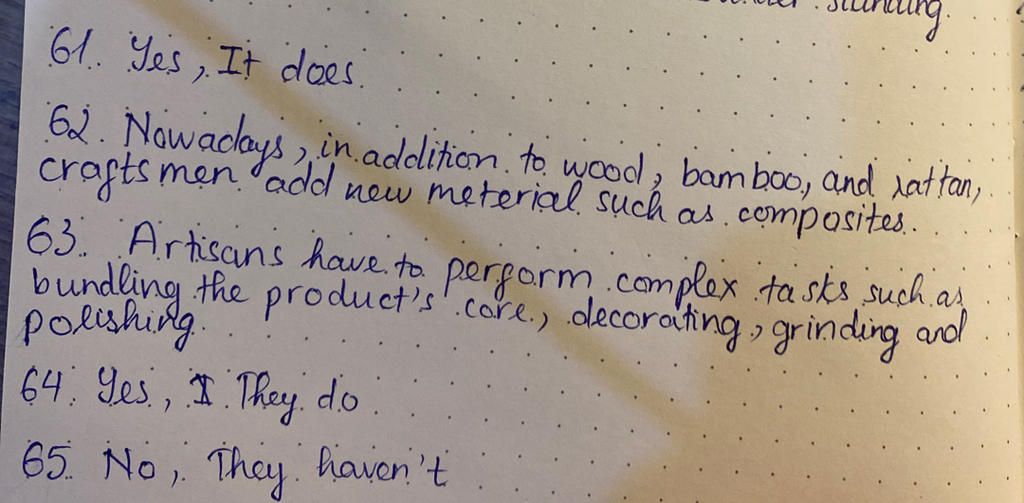 standing.
61. Yes, It does.
62. Nowadays, in addition to wood, bamboo, and rattan,
craftsmen add new meterial such as composites.
63. Artisans have to perform complex tasks such as
bundling the product's core, decorating, grinding and
polishing.
64. Yes, They do.
65. No, They haven't